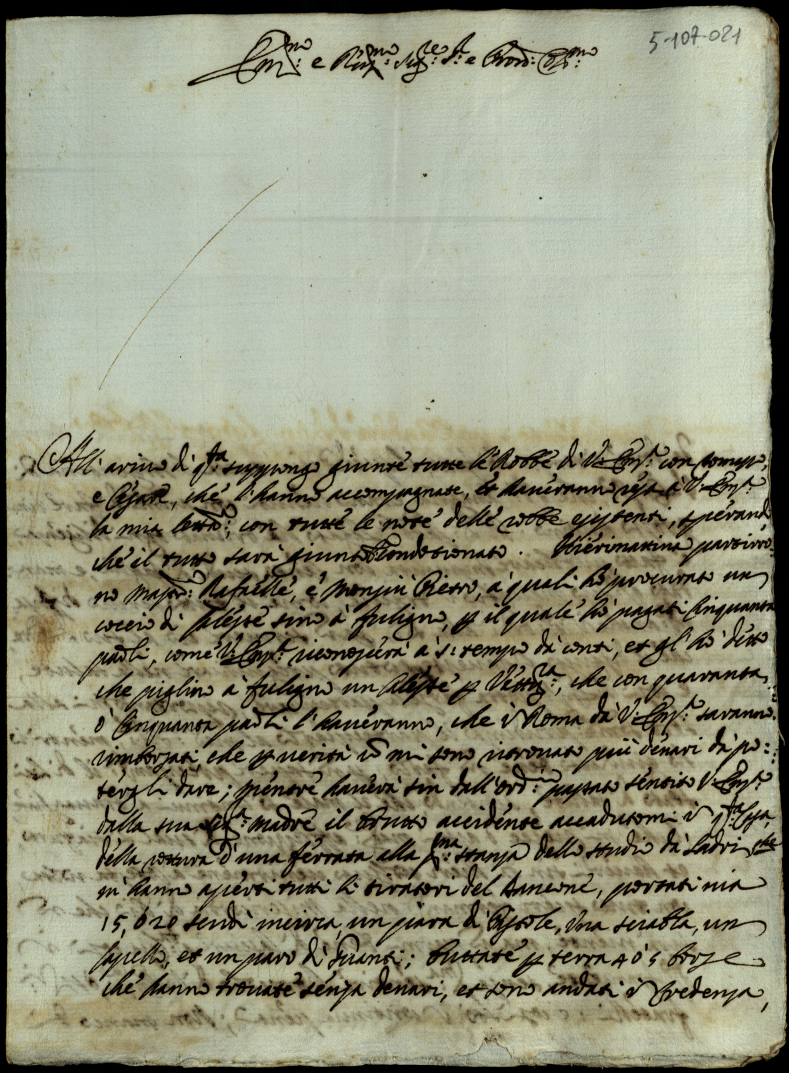 5-107-021
Em.mo e Rev.mo Sig.re S.r e Pron: Col.mo
All arivo di q.ta suppongo giunte tutte le Robbe di V. Em.za con
e Cesare, che l'hanno accompagnate, et haveranno a V. Em.za
la mia lettra, con tutte le note delle robbe esistenti, sperando
che il tutto sarà giunto Condetionato. Hierimattina partiro
no mastro: Rafaelle, e Monsiù Pietro, à quali hò procurato un
coccio di sino à fuligno, p il quale hò pagati Cinquanta
paoli, come V. Em.za riconoscerà à s: tempo dà conti, et gl'hò ditto
che piglino à fuligno un p, che con quaranta,
ò Cinquanta paoli l'haveranno, che i Roma dà V. Em.za saranno
rimborsati, che p verità nõ mi sono ritrovato più denari dà po:
tergli dare; mentre haverà sin dall'ord.rio passato sentito V. Em.za
dalla sua madre il brutto accidente accadutomi i q.ta Casa,
della rottura d'una ferrata alla p.ma stanza dello studio dà ladri, che
m'hanno aperti tutti li tiratori del Bancone, portati via
15, ò 20 scudi incirca un paro di Pistole, una sciabla, un
Capello, et un paro di Guanti; buttate p terra 4 ò 5 borze
che hanno trovate senza denari, et sono andati i Credenza,